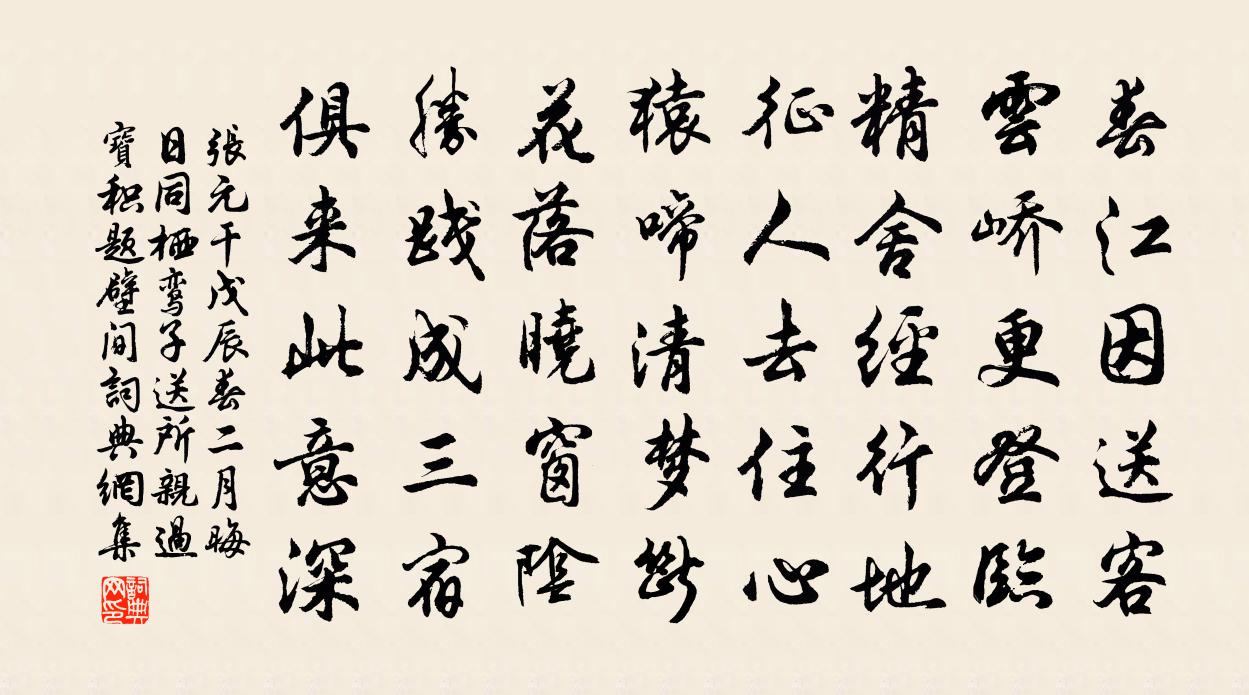 春江因送客
雲嶠更登臨
精舍經行地
征人去住心
猿啼清梦斷
花落曉窗陰
勝践成三宿
俱来此意深
張元干戊辰春二月晦
日同栖鸾子送所親過
寶积题壁间詞典網集
詞典网印